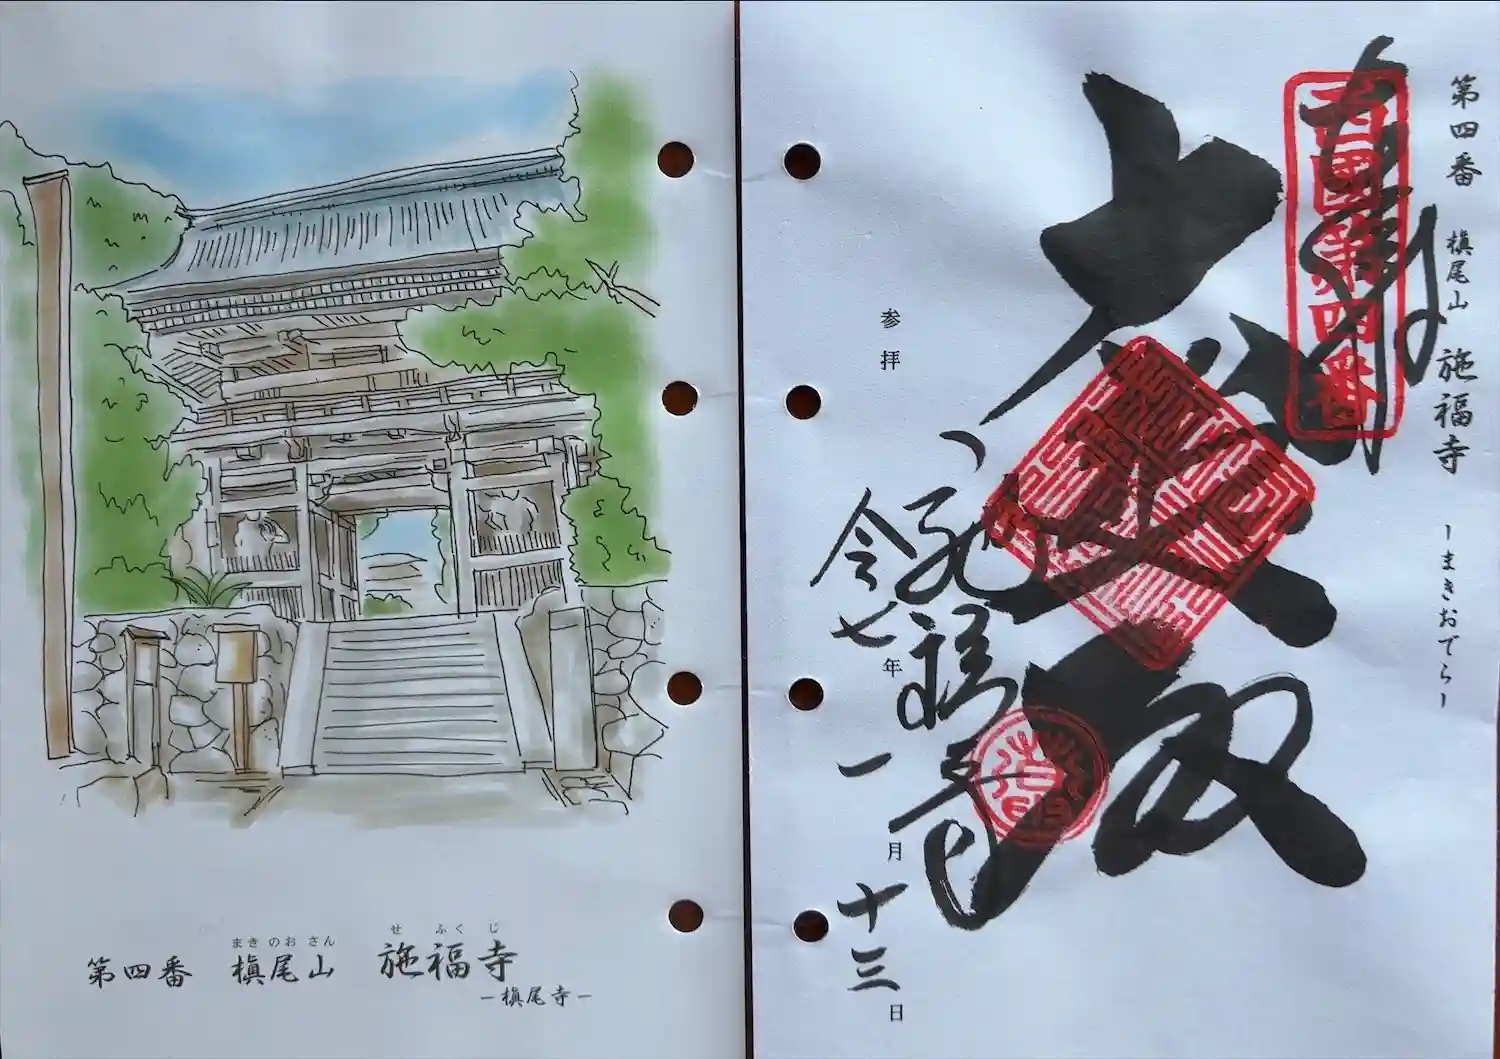 まき のお さん せ ふく じ
第四番 槇尾山 施福寺
－槇尾寺－
第四番 槇尾山 施福寺 －まきおでら－
西國第四番
大悲殿
施福寺
参拝 令七年一月十三日